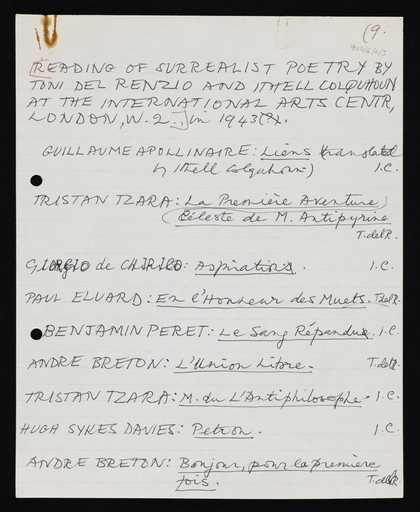 (9.
READING OF SURREALIST POETRY BY
TONI DEL RENZIO AND ITHELL COLQUHOUN
AT THE INTERNATIONAL ARTS CENTR,
LONDON, W.2.] in 1943(?).
GUILLAUME APOLLINAIRE: Liens translated
by Ithell Colquhoun) I.C.
TRISTAN TZARA: La Première Aventure
(Céleste de M. Antipyrine
T. del R.
GIORGIO de CHIRICO: Aspirations. I.C.
PAUL ELUARD: En l'Honneur des Muets. T. del R.
BENJAMIN PERET: Le Sang Répandu. I.C.
ANDRE BRETON: L'Union Libre. T. del R.
TRISTAN TZARA: M. du L'Antiphilosophe. I.C.
HUGH SYKES DAVIES: Petron. I.C.
ANDRE BRETON: Bonjour, pour la première
fois. T. del R.